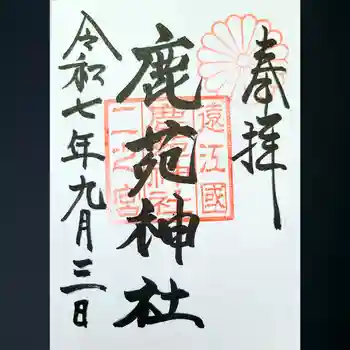 奉拝
鹿苑神社
令和七年九月三日
遠江國
鹿苑神社
二之宮